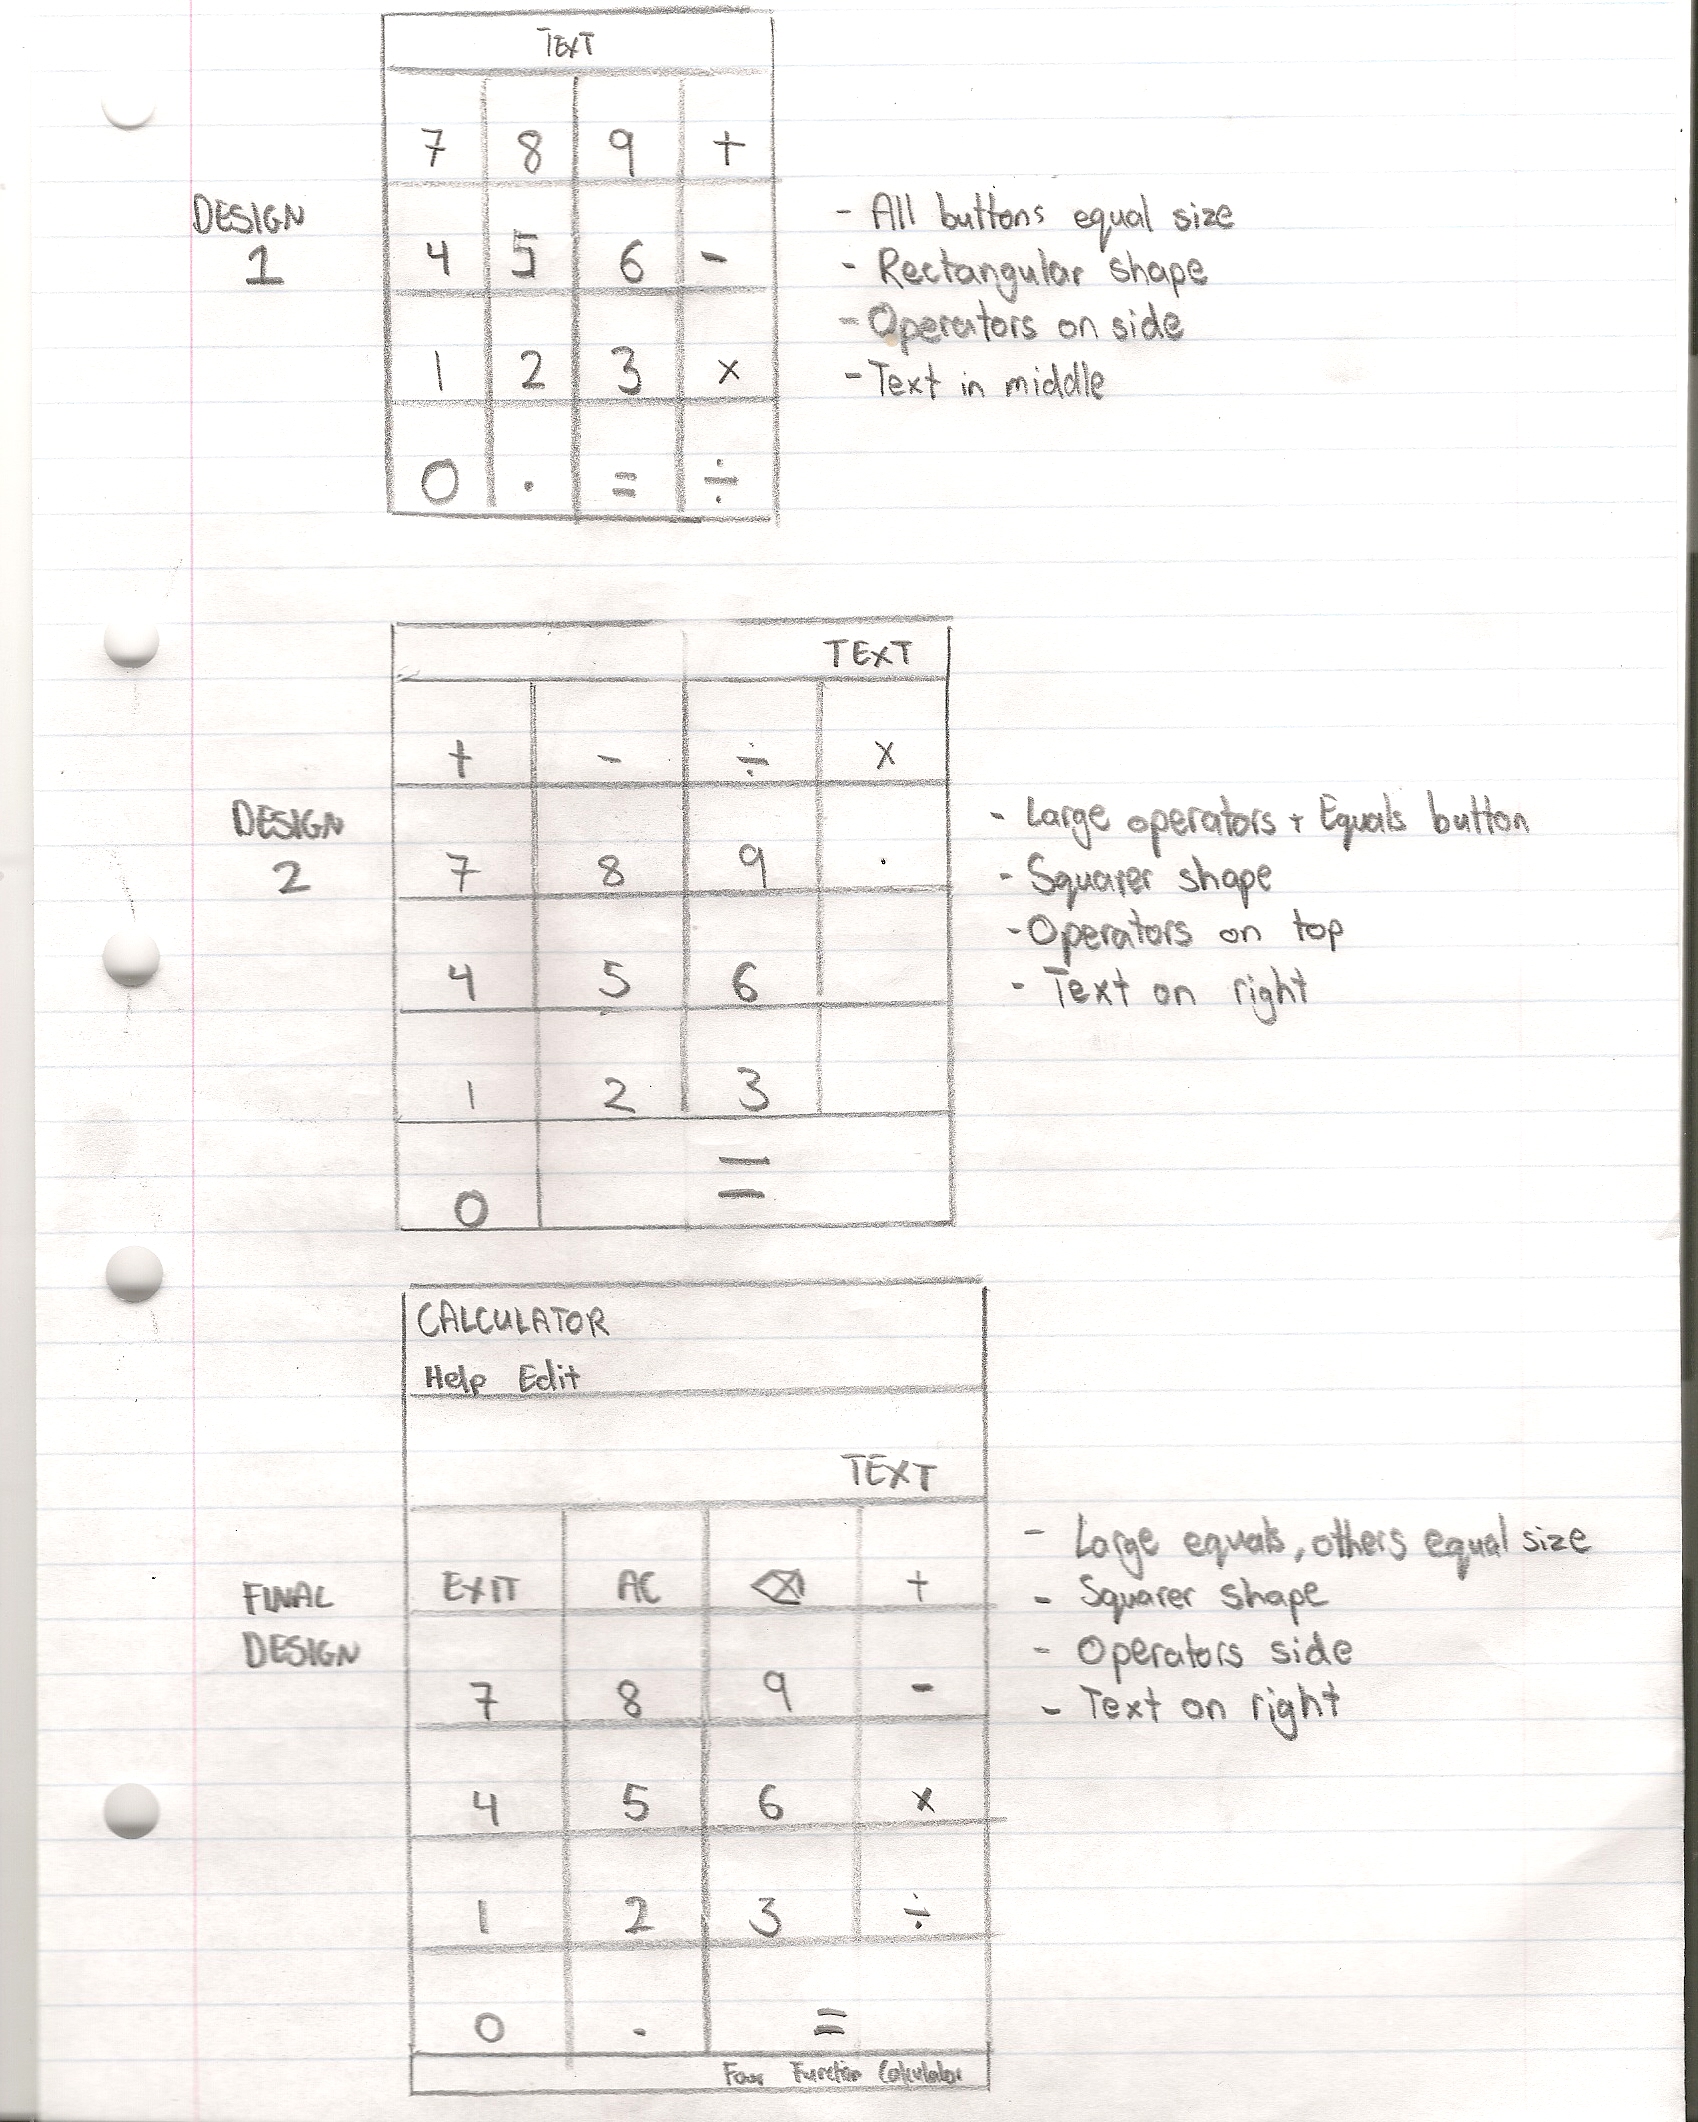 TEXT
7 8 9 +
DESIGN
1
4 5 6 -
1 2 3 ×
0 . = ÷
- All buttons equal size
- Rectangular shape
- Operators on side
- Text in middle
TEXT
+ - ÷ ×
DESIGN
2
7 8 9 .
4 5 6
1 2 3
0 =
- Large operators + Equals button
- Squarer shape
- Operators on top
- Text on right
CALCULATOR
Help Edit
TEXT
FINAL
DESIGN
EXIT AC ⌫ +
7 8 9 -
4 5 6 ×
1 2 3 ÷
0 . =
Four Function Calculator
- Large equals, others equal size
- Squarer shape
- Operators side
- Text on right